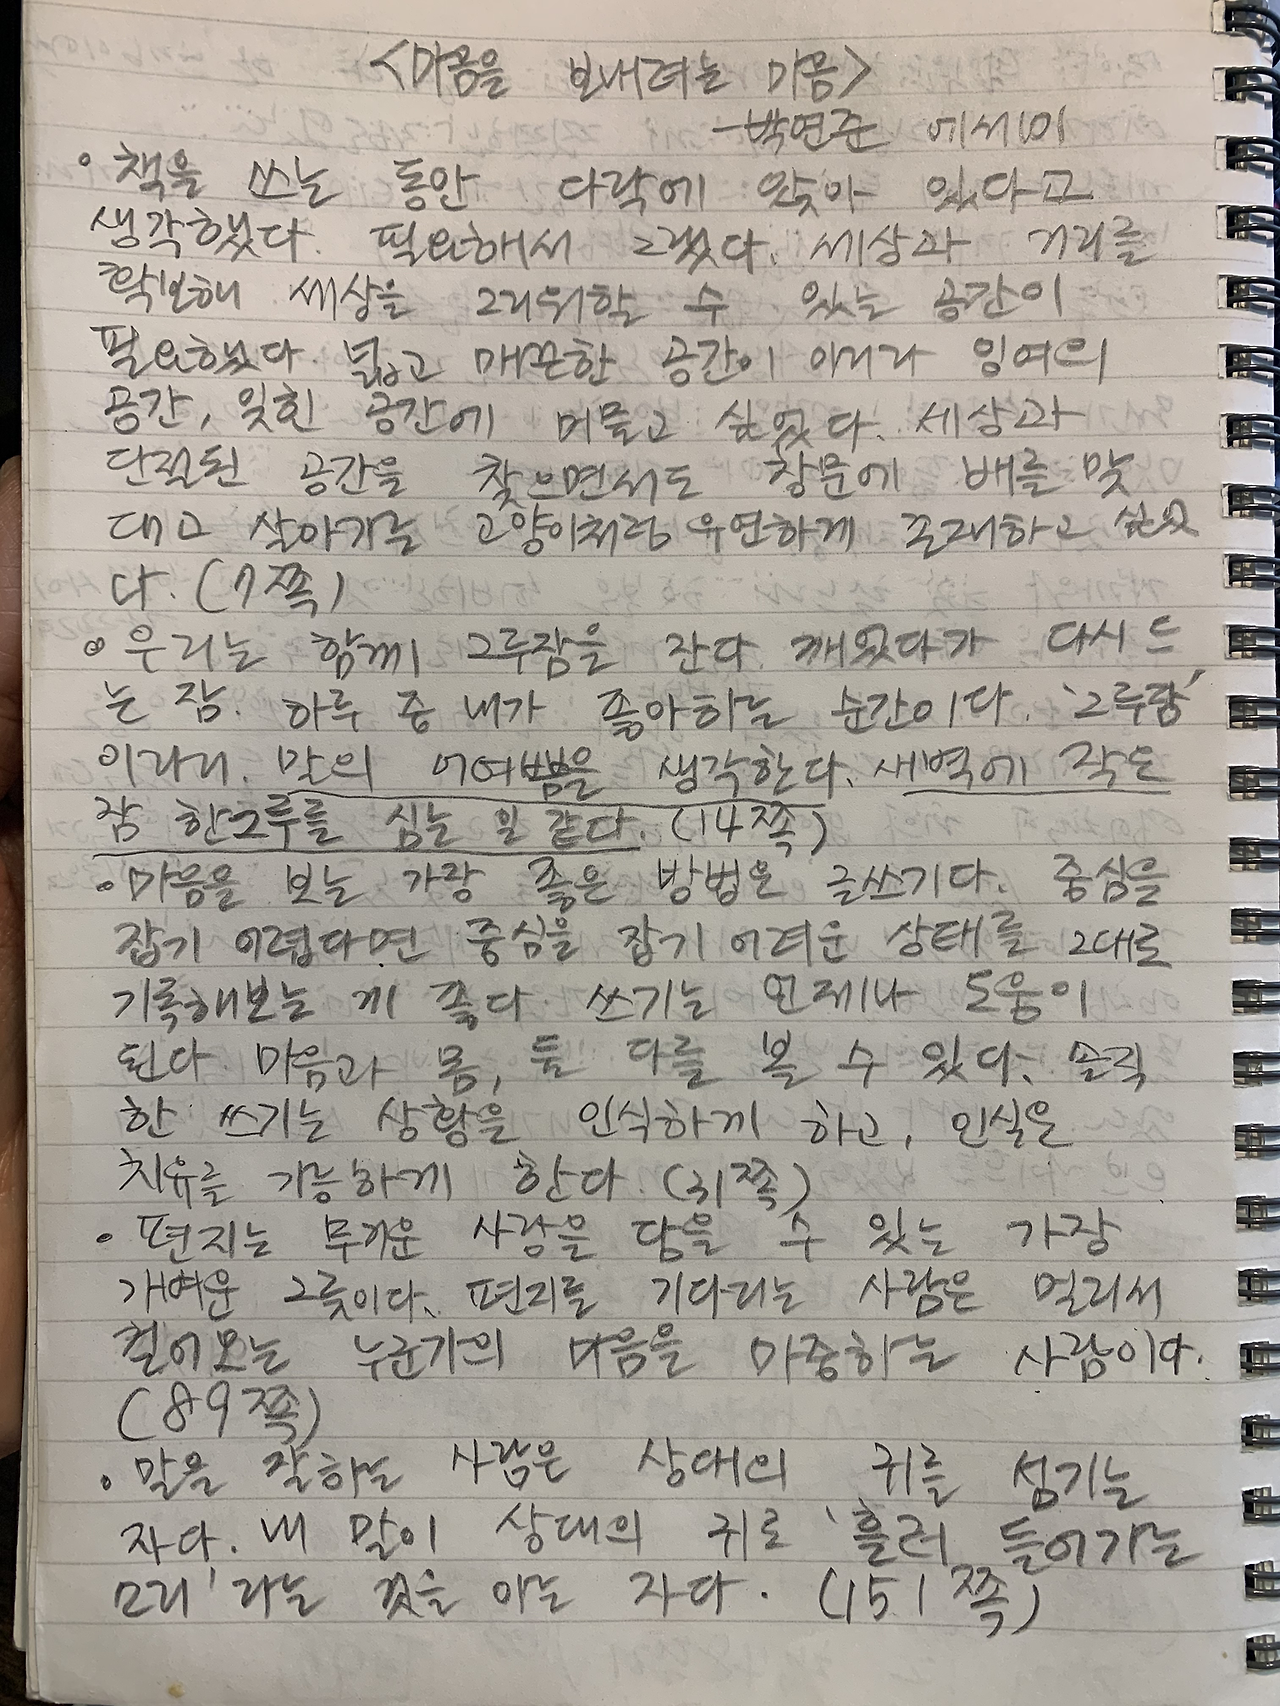 <마음을 보내려는 마음>
-박연준 에세이
• 책을 쓰는 동안 다락에 앉아 있다고
생각했다. 필요해서 그랬다. 세상과 거리를
확보해 세상을 그리워할 수 있는 공간이
필요했다. 넓고 매끈한 공간이 아니라 잉여의
공간, 잊힌 공간에 머물고 싶었다. 세상과
단절된 공간을 찾으면서도 창문에 배를 맞
대고 살아가는 고양이처럼 유연하게 존재하고 싶었
다. (7쪽)
• 우리는 함께 그루잠을 잔다. 깨었다가 다시 드
는 잠. 하루 중 내가 좋아하는 순간이다. '그루잠'
이라니. 말의 어여쁨을 생각한다. 새벽에 작은
잠 한그루를 심는 일 같다. (14쪽)
• 마음을 보는 가장 좋은 방법은 글쓰기다. 중심을
잡기 어렵다면 중심을 잡기 어려운 상태를 그대로
기록해보는 게 좋다. 쓰기는 언제나 도움이
된다. 마음과 몸, 둘 다를 볼 수 있다. 솔직
한 쓰기는 상황을 인식하게 하고, 인식은
치유를 가능하게 한다. (31쪽)
• 편지는 무거운 사랑을 담을 수 있는 가장
가벼운 그릇이다. 편지를 기다리는 사람은 멀리서
걸어오는 누군가의 마음을 마중하는 사람이다.
(89쪽)
• 말을 잘하는 사람은 상대의 귀를 섬기는
자다. 내 말이 상대의 귀로 '흘러 들어가는
소리'라는 것을 아는 자다. (151쪽)